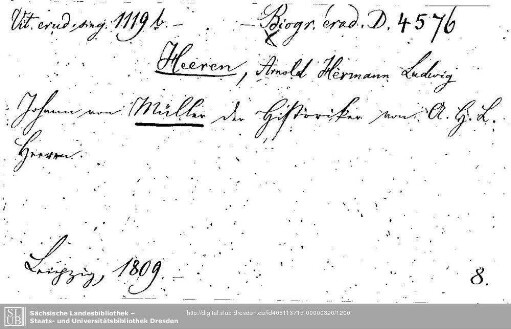 Vit. erud. sing. 1119 b. — Biogr. erud. D. 4576
Heeren, Arnold Hermann Ludwig
Johann von Müller der Historiker von A. H. L.
Heeren.
Leipzig, 1809. 8.
SLUB
Sächsische Landesbibliothek –
Staats- und Universitätsbibliothek Dresden